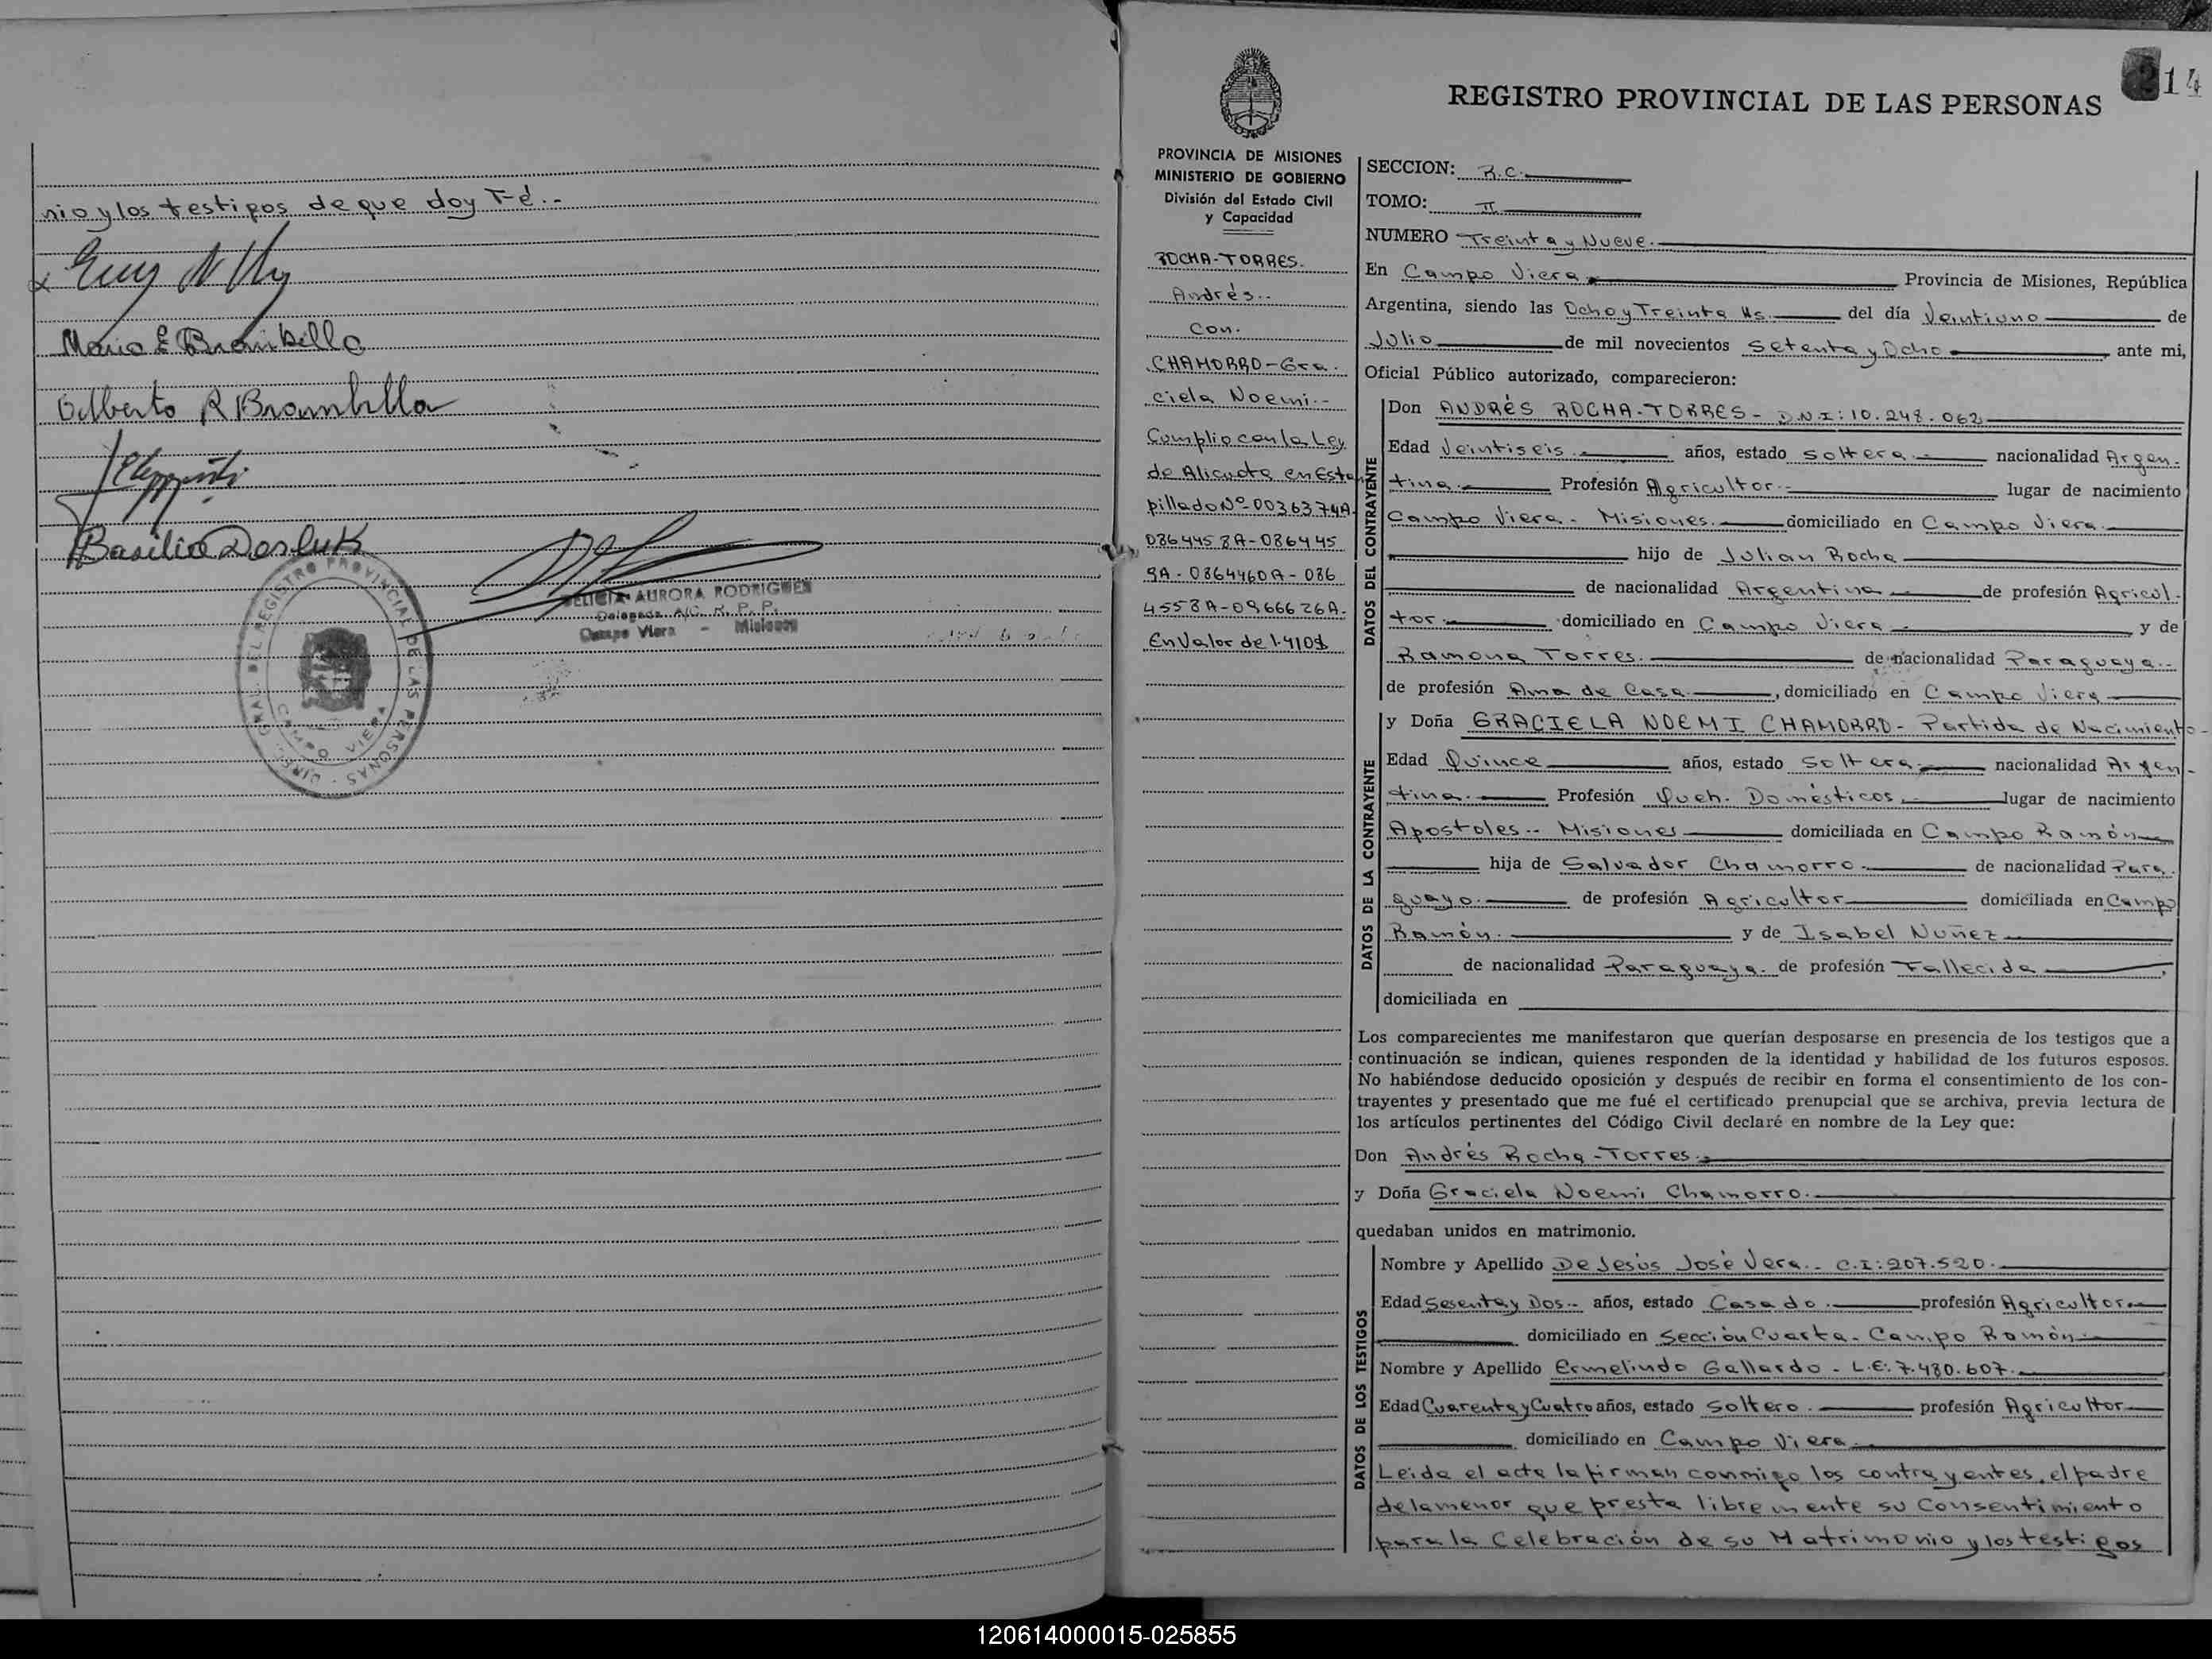 nio y los testigos de que doy Fé.-
Mario E Brambilla
Gilberto R Brambilla
Basilio
DELICIA AURORA RODRIGUES
Delegada A/C. R. P. P.
Campo Viera - Misiones
DEL REGISTRO PROVINCIAL DE LAS PERSONAS
CAMPO VIERA
214
REGISTRO PROVINCIAL DE LAS PERSONAS
PROVINCIA DE MISIONES
MINISTERIO DE GOBIERNO
División del Estado Civil
y Capacidad
ROCHA-TORRES.
Andrés..
Con.
CHAMORRO-Gra.
ciela Noemi.-
Cumplio con la Ley
de Alicuota en Esta
pillado Nº-0036374A.
0864458A-086445
9A-0864460A-086
4558A-0966626A.
En Valor de 1.410$
SECCION: R.C.
TOMO: II
NUMERO Treinta y Nueve.
En Campo Viera Provincia de Misiones, República
Argentina, siendo las Ocho y Treinta Hs. del día Veintiuno de
Julio de mil novecientos Setenta y Ocho ante mi,
Oficial Público autorizado, comparecieron:
DATOS DEL CONTRAYENTE
Don ANDRÉS ROCHA-TORRES- D.N.I: 10.248.062
Edad Veintiseis años, estado soltero nacionalidad Argen-
tina. Profesión Agricultor.- lugar de nacimiento
Campo Viera- Misiones. domiciliado en Campo Viera.
hijo de Julian Rocha
de nacionalidad Argentina de profesión Agricul-
tor. domiciliado en Campo Viera y de
Ramona Torres. de nacionalidad Paraguaya..
de profesión Ama de Casa. , domiciliado en Campo Viera
DATOS DE LA CONTRAYENTE
y Doña GRACIELA NOEMI CHAMORRO- Partida de Nacimiento-
Edad Quince años, estado Soltera. nacionalidad Argen-
tina. Profesión Queh. Domésticos. lugar de nacimiento
Apostoles.. Misiones domiciliada en Campo Ramón
hija de Salvador Chamorro. de nacionalidad Para.
guayo. de profesión Agricultor domiciliada en Campo
Ramón. y de Isabel Nuñez
de nacionalidad Paraguaya. de profesión Fallecida ,
domiciliada en
Los comparecientes me manifestaron que querían desposarse en presencia de los testigos que a
continuación se indican, quienes responden de la identidad y habilidad de los futuros esposos.
No habiéndose deducido oposición y después de recibir en forma el consentimiento de los con-
trayentes y presentado que me fué el certificado prenupcial que se archiva, previa lectura de
los artículos pertinentes del Código Civil declaré en nombre de la Ley que:
Don Andrés Rocha-Torres.
y Doña Graciela Noemi Chamorro.
quedaban unidos en matrimonio.
DATOS DE LOS TESTIGOS
Nombre y Apellido De Jesús José Vera.. C.I: 207.520.
Edad Sesenta y Dos.- años, estado Casado. profesión Agricultor
domiciliado en Sección Cuarta- Campo Ramón
Nombre y Apellido Ermelindo Gallardo - L.E: 7.480.607.
Edad Cuarenta y Cuatro años, estado Soltero. profesión Agricultor
domiciliado en Campo Viera.
Leida el acta la firman conmigo los contrayentes, el padre
de la menor que presta libremente su Consentimiento
para la Celebración de su Matrimonio y los testigos
120614000015-025855